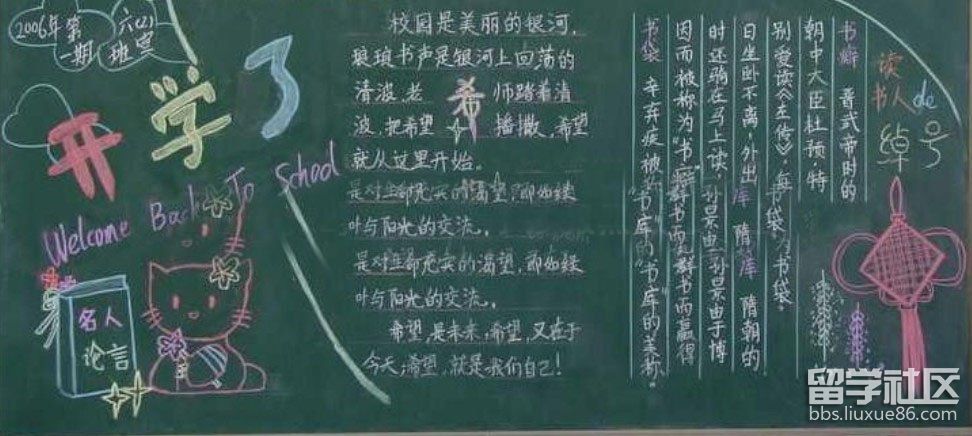 2006年第
一期
六(2)
班宣
开学了
Welcome Back To School
名人
论言
校园是美丽的银河,
琅琅书声是银河上回荡的
清波,老 师踏着清
波,把希望 播撒,希望
就从这里开始。
希
是对生命充实的渴望,即如绿
叶与阳光的交流。
是对生命充实的渴望,即如绿
叶与阳光的交流。
希望,是未来,希望,又在于
今天,希望,就是我们自己!
读
书人de
绰号
书癖 晋武帝时的
朝中大臣杜预,特
别爱读《左传》,每
日坐卧不离,外出
时还驹在马上读,
因而被称为"书
书袋
书库 隋朝的
孙景由于博
群书而赢得
"书库"的美称。
留学社区
bbs.liuxue86.com